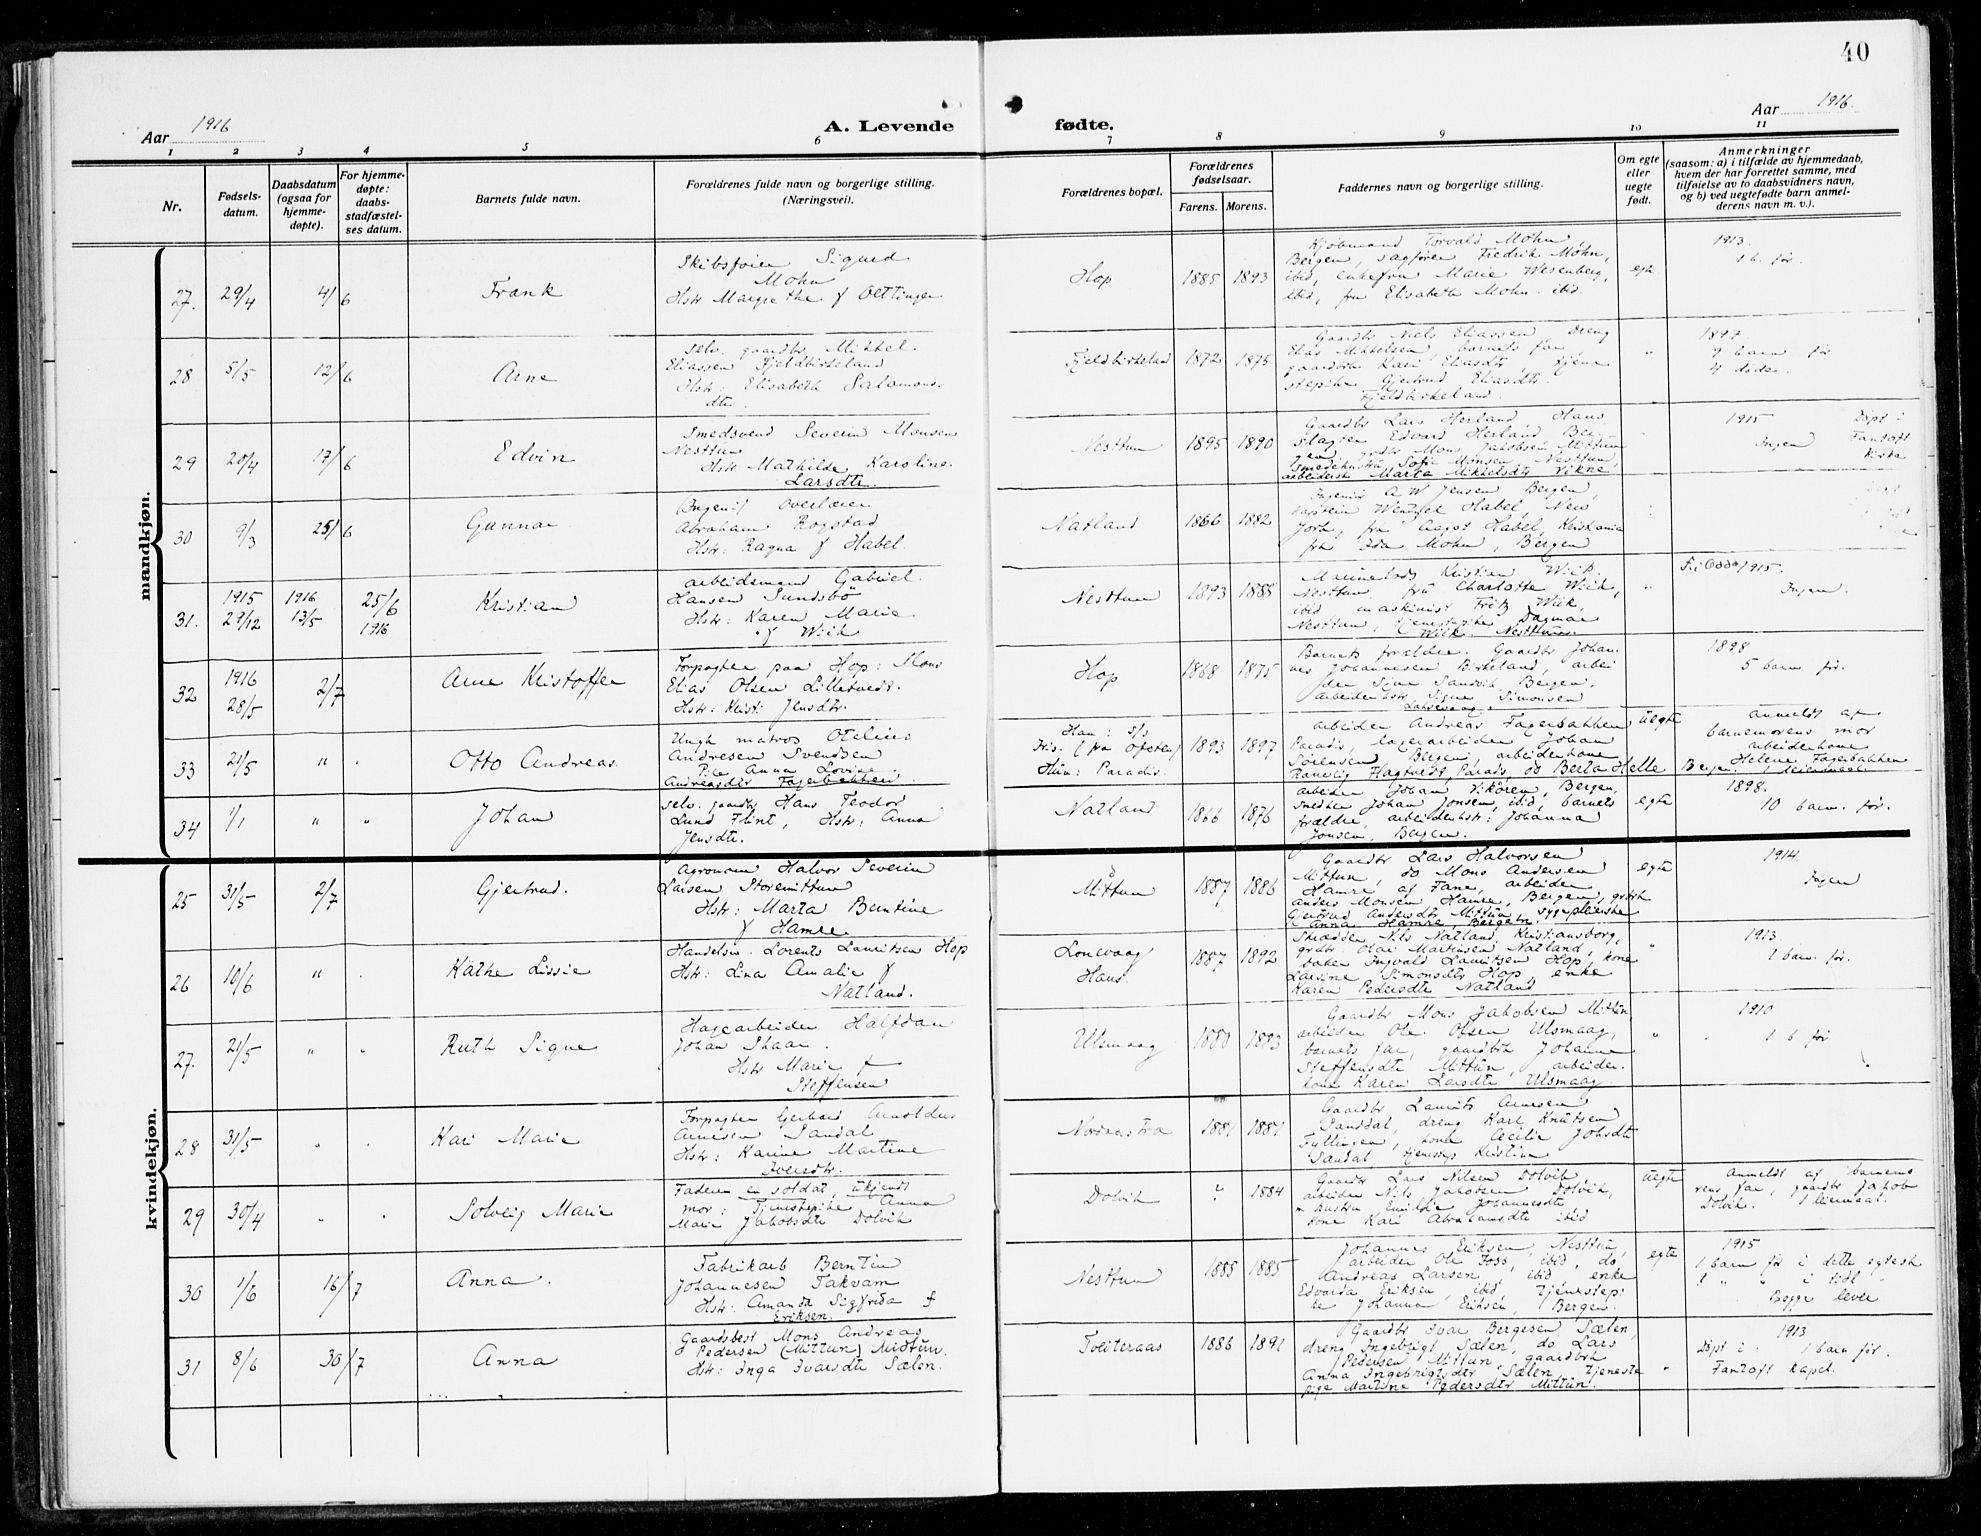 40
Aar 1916
A. Levende fødte.
Aar 1916.
1 2 3 4 5 6 7 8 9 10 11
Nr.
Fødsels-
datum.
Daabsdatum
(ogsaa for
hjemme-
døpte).
For hjemme-
døpte:
daabs-
stadfæstel-
ses datum.
Barnets fulde navn.
Forældrenes fulde navn og borgerlige stilling.
(Næringsvei).
Forældrenes bopæl.
Forældrenes
fødselsaar.
Farens. Morens.
Faddernes navn og borgerlige stilling.
Om egte
eller
uegte
født.
Anmerkninger
(saasom: a) i tilfælde av hjemmedaab,
hvem der har forrettet samme, med
tilføielse av to daabsvidners navn,
og b) ved uegtefødte barn anmel-
derens navn m. v.).
mandkjøn.
27. 29/4 4/6 Frank
Skibsfører Sigurd
Mohn
Hstr Margrethe f Oettinger
Hop 1885 1893
Kjøbmand Torvald Mohn,
Bergen, sagfører Fredrik Mohn,
ibid, enkefru Marie Wesenberg,
ibid, fru Elisabeth Mohn ibid.
egte
1913.
1 b. før.
28 5/5 12/6 Arne
selv. gaardbr Mikkel
Eliassen Fjeldbirkeland
Hstr: Elisabeth Salamons
dtr.
Fjeldbirkeland 1872 1875
Gaardbr Niels Eliassen, dreng
Elias Mikkelsen, barnets far
gaardbrk Kari Eliasdtr, tjene
stepike Gjertrud Eliasdtr.
Fjeldbirkeland.
"
1897
9 barn før
4 døde.
29 20/4 17/6 Edvin
Smedsvend Severin Monsen
Nesttun
Hstr Mathilde Karoline
Larsdtr.
Nesttun 1895 1890
Gaardbr Lars Herland Haus
slagter Edvard Herland Ber
gen, grdbr Mons Jakobsen Mittun
smedehustru Sofie Monsen Nesttun,
arbeiderhstr Marta Mikkelsdtr Vikne
1915
Ingen
Døpt i
Fantoft
kirke
30 9/3 25/6 Gunnar
(Ingeniør) Overlærer
Abraham Rogstad
Hstr: Ragna f Habel.
Natland 1866 1882
Ingeniør A W Jensen Bergen,
Wentzel Habel, New
York, frk Aagot Habel, Kristiania
frk Ida Mohn, Bergen
31. 1915 29/12 1916 13/5 25/6 1916 Kristian
arbeidsmand Gabriel
Hansen Sundsbø
Hstr: Karen Marie
f Wiik
Nesttun 1893 1885
Kristian Wiik.
Nesttun, fru Charlotte Wiik,
ibid, maskinist Fritz Wiik,
Nesttun, tjenestepike Dagmar
Wiik. Nesttun.
"
1915.
Ingen.
32 1916 28/5 2/7 Arne Kristoffer
Forpagter paa Hop: Mons
Elias Olsen Lilletvedt.
Hstr: Kristi Jensdtr.
Hop 1868 1875
Barnets forældre. Gaardbr Johan
nes Johannesen Birkeland, arbei
der Sjur Sandvik, Bergen,
arbeiderhstr Signe Simonsen
Laksevaag.
1898
5 barn før.
33 21/5 " " Otto Andreas.
Ungk matros Otelius
Andresen Svendsen
Pike Anna Lovise
Andreasdtr Fagerbakken
Han: s/s
Iris. (fra Ofoten)
Hun: Paradis. 1893 1897
arbeider Andreas Fagerbakken
Paradis, lagerarbeider Johan
Sørensen Bergen, arbeiderkone
Ranveig Flagtvedt Paradis, do Berta Helle
uegte
anmeldt af
barnemorens mor
arbeiderkone
Helene Fagerbakken
Bergen. 1 leiermaal
34 1/1 " " Johan
selv. gaardbr Hans Teodor
Lund Flint, Hstr: Anna
Jensdtr.
Natland 1866 1876
arbeider Johan Vikøren, Bergen,
snedker Johan Jonsen, ibid, barnets
forældre, arbeiderhstr: Johanna
Jonsen, Bergen.
egte
1898.
10 barn. før.
kvindekjøn.
25 31/5 2/7 Gjertrud.
Agronom Halvor Severin
Larsen Storemittun
Hstr: Marta Berntine
f Hamre.
Mittun 1887 1886
Gaardbr Lars Halvorsen
Mittun, do Mons Andersen
Hamre af Fane, arbeider
Anders Monsen Hamre, Bergen, grdbrk
Gjertrud Andersdtr Mittun, sygepleierske
Anna Hamre, Bergen.
egte
1914
Ingen
26 10/6 " . Käthe Lissie
Handelsm. Lorents Lauritsen Hop
Hstr: Lina Amalie f
Natland.
Lonevaag
Haus. 1887 1892
Skrædder Nils Natland, Kristiansborg,
grdbr Olai Martinsen Natland,
baker Ingvald Lauritsen Hop, kone
Larsine Simonsdtr Hop, enke
Karen Pedersdtr Natland
"
1913.
1 barn. før.
27. 21/5 " " Ruth Signe
Hagearbeider Halfdan
Johan Skaar.
Hstr Marie f
Steffensen
Ulsmaag 1880 1883
Gaardbr Mons Jakobsen Mittun,
arbeider Ole Olsen Ulsmaag,
barnets far, gaardbrk Johanne
Steffensdtr Mittun, arbeider
kone Karen Larsdtr Ulsmaag.
"
1910
1 b før
28 31/5 " . Kari Marie
Forpagter Gerhard Arnoldus
Arnesen Sandal
Hstr: Karine Martine
Iversdtr.
Nordaas Fra 1881 1887
Gaardbr Laurits Arnesen
Sandal, dreng Karl Knutsen
Fyllingen, kone Cecilie Johsdtr
Sandal, tjenestep Kristine
29 30/4 " . Solveig Marie
Faderen en soldat, ukjendt
mor: Tjenestepike Anna
Marie Jakobsdtr Dolvik
Dolvik ? 1884
Gaardbr Lars Nilsen Dolvik
arbeider Nils Jakobsen Dolvik,
m hustru Emilie Johannesdtr
kone Kari Abrahamsdtr ibid
uegte
Anmeldt af barnemo
rens far, gaardbr Jakob
Dolvik. 1 leiermaal.
30 1/6 16/7 Anna.
Fabrikarb Berntin
Johannesen Takvam
Hstr: Amanda Sigfrida f
Eriksen.
Nesttun 1885 1885
Johannes Eriksen, Nesttun,
arbeider Ole Foss, ibid, do
Andreas Larsen, ibid enke
Edvarda Eriksen, ibid, tjenestepi
ke Johanna Eriksen, Bergen.
egte
1915
1 barn før i dette egtesk
1 " " i tidl "
Begge lever
31 8/6 30/7 Anna
Gaardsbest Mons Andreas
Pedersen (Mittun) Midtun.
Hstr: Inga Ivarsdtr Sælen.
Tveiteraas 1886 1891
Gaardbr Ivar Bergesen Sælen,
dreng Ingebrigt Sælen, do Lars
Pedersen Mittun, gaardbrk
Anna Ingebrigtsdtr Sælen, tjeneste
pige Martine Pedersdtr Mittun.
"
1913
Døpt i 1 barn før.
Fantoft kapel.